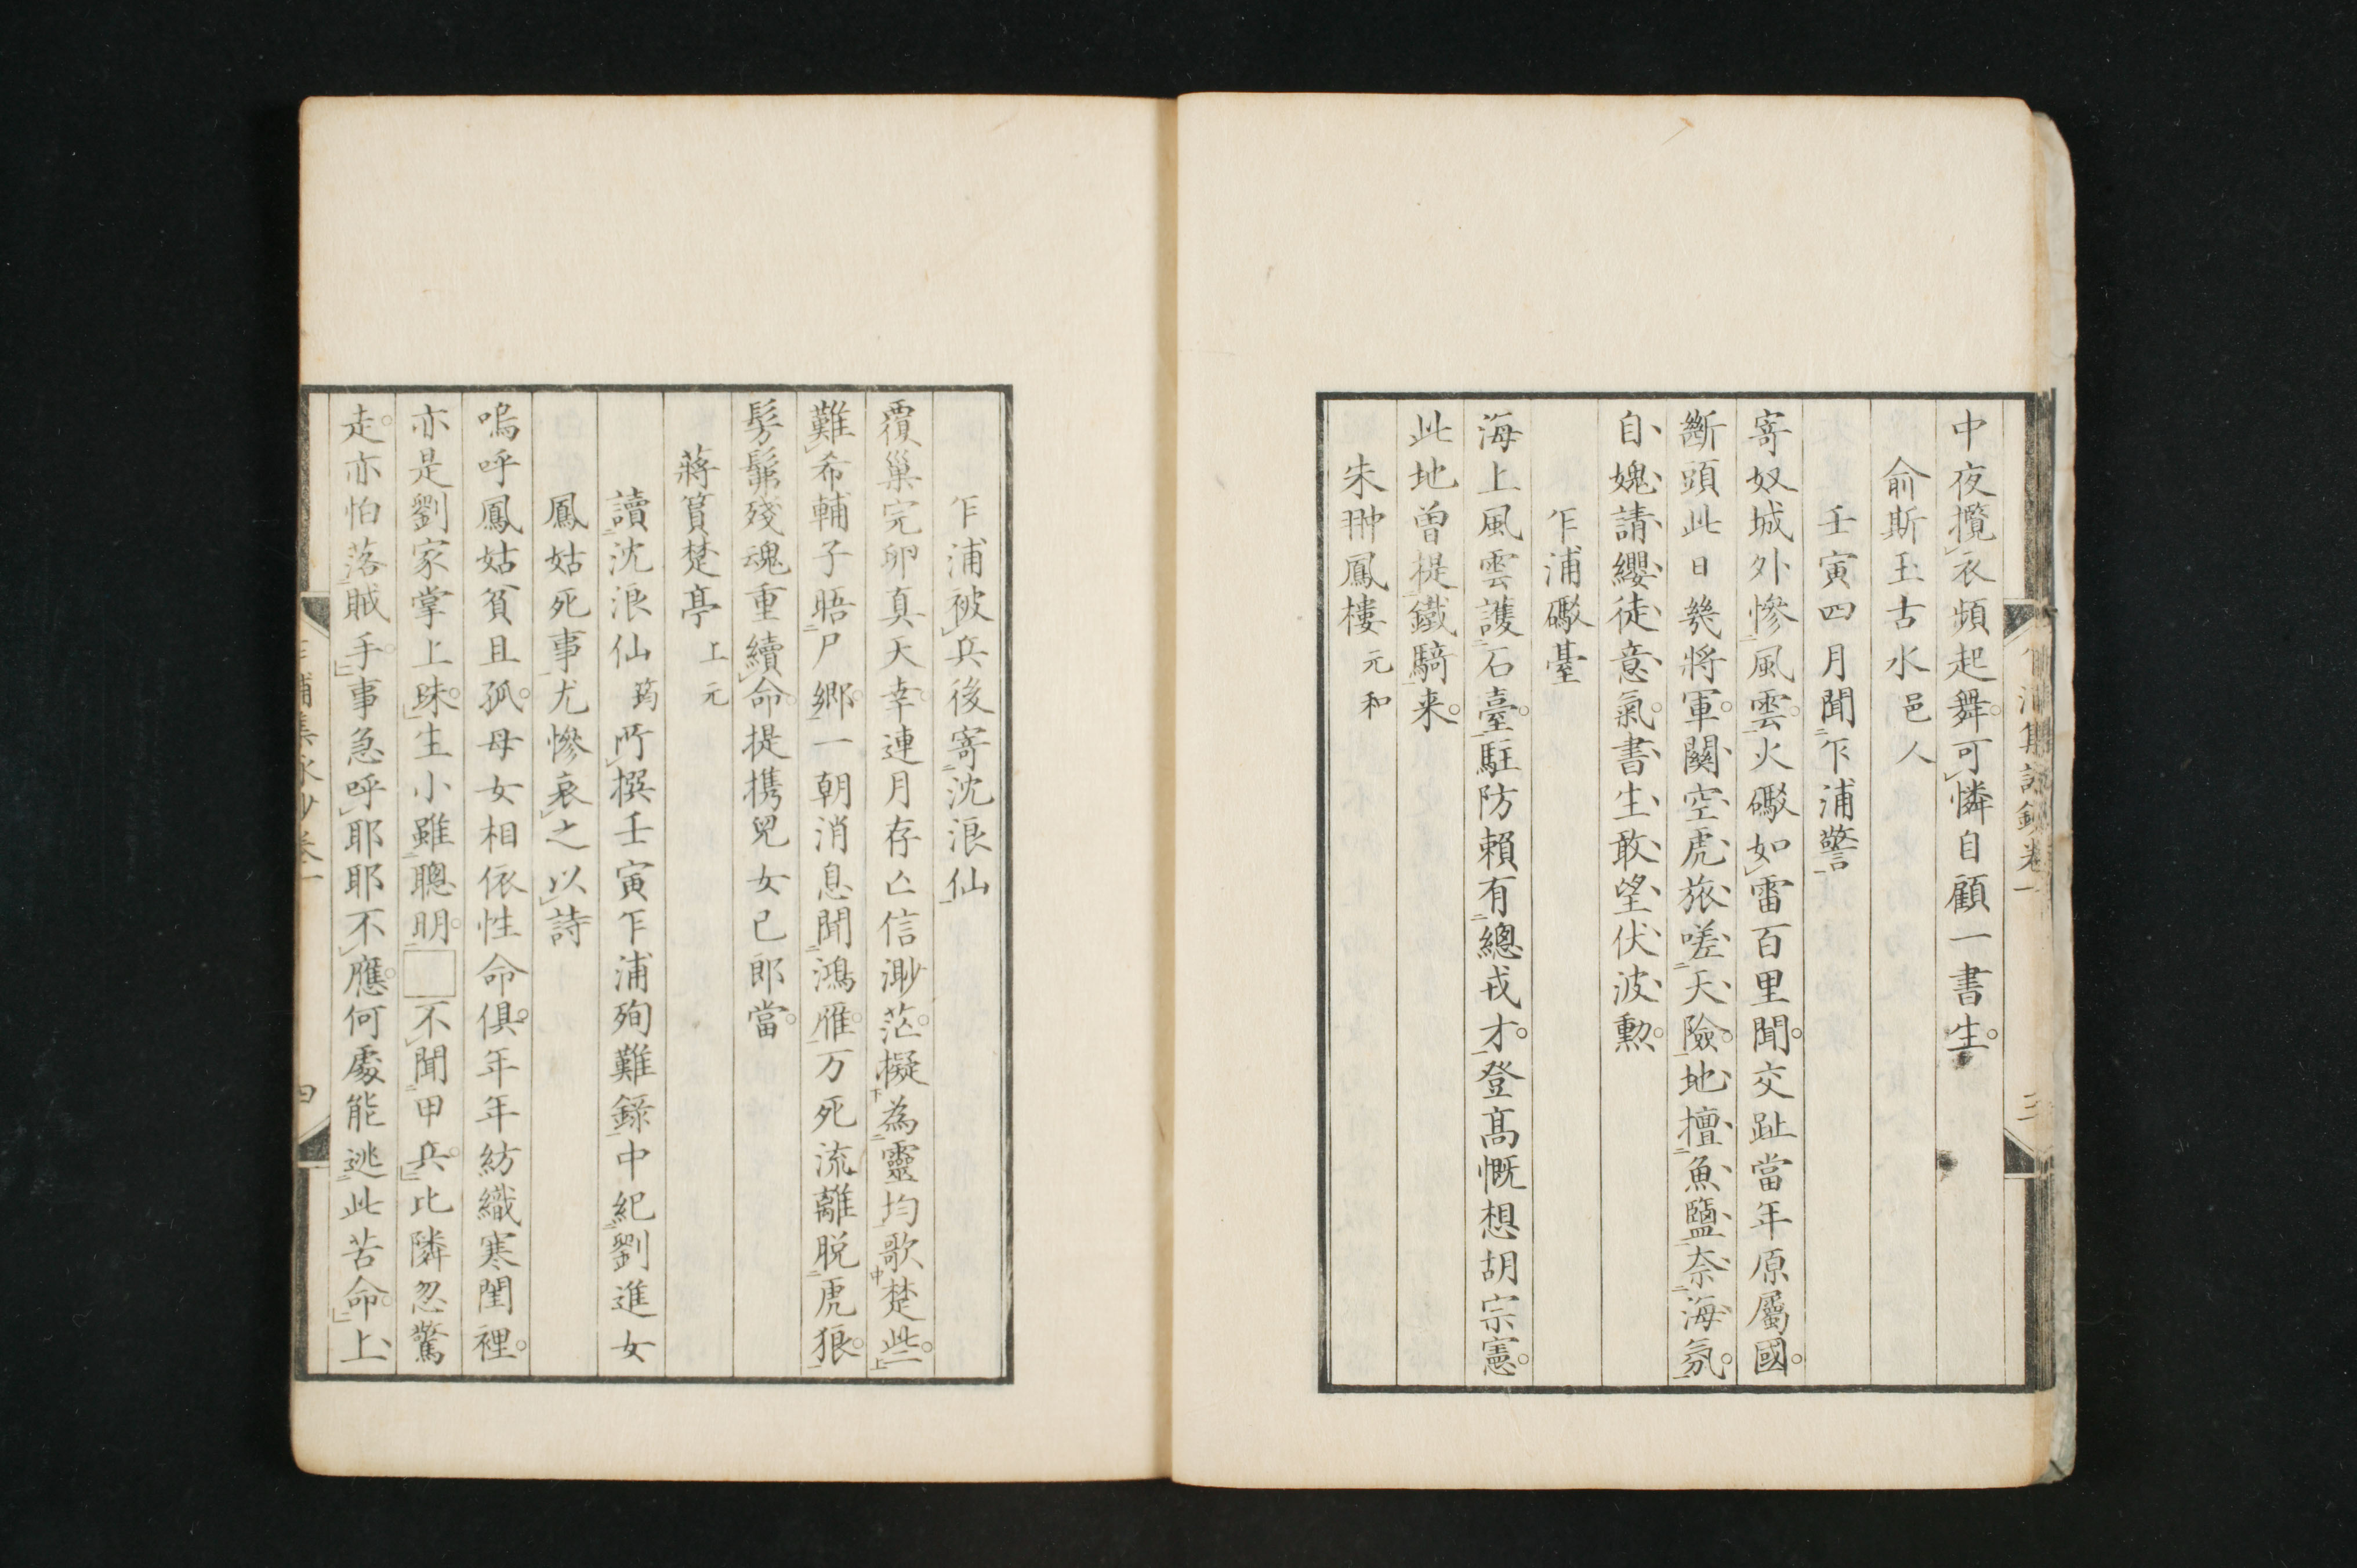 中夜攬衣頻起舞可憐自顧一書生
俞斯玉古水邑人
壬寅四月聞乍浦警
寄奴城外慘風雲火礮如雷百里聞交趾當年原屬國
斷頭此日幾將軍闕空虎旅嗟天險地擅魚鹽奈海氛
自媿請纓徒意氣書生敢望伏波勲
乍浦礮臺
海上風雲護石臺駐防賴有總戎才登高慨想胡宗憲
此地曽提鐵騎来
朱翀鳳樓元和
乍浦集詠鈔卷一
三
乍浦被兵後寄沈浪仙
覆巢完卵真天幸連月存亡信渺茫擬為靈均歌楚些
難希輔子晤尸郷一朝消息聞鴻雁万死流離脱虎狼
髣髴殘魂重續命提携兒女已郎當
蔣篔楚亭上元
讀沈浪仙筠所撰壬寅乍浦殉難録中紀劉進女
鳳姑死事尤慘哀之以詩
嗚呼鳳姑貧且孤母女相依性命俱年年紡織寒閨裡
亦是劉家掌上珠生小雖聰明□不聞甲兵比隣忽驚
走亦怕落賊手事急呼耶耶不應何處能逃此苦命上
乍浦集詠鈔卷一
四